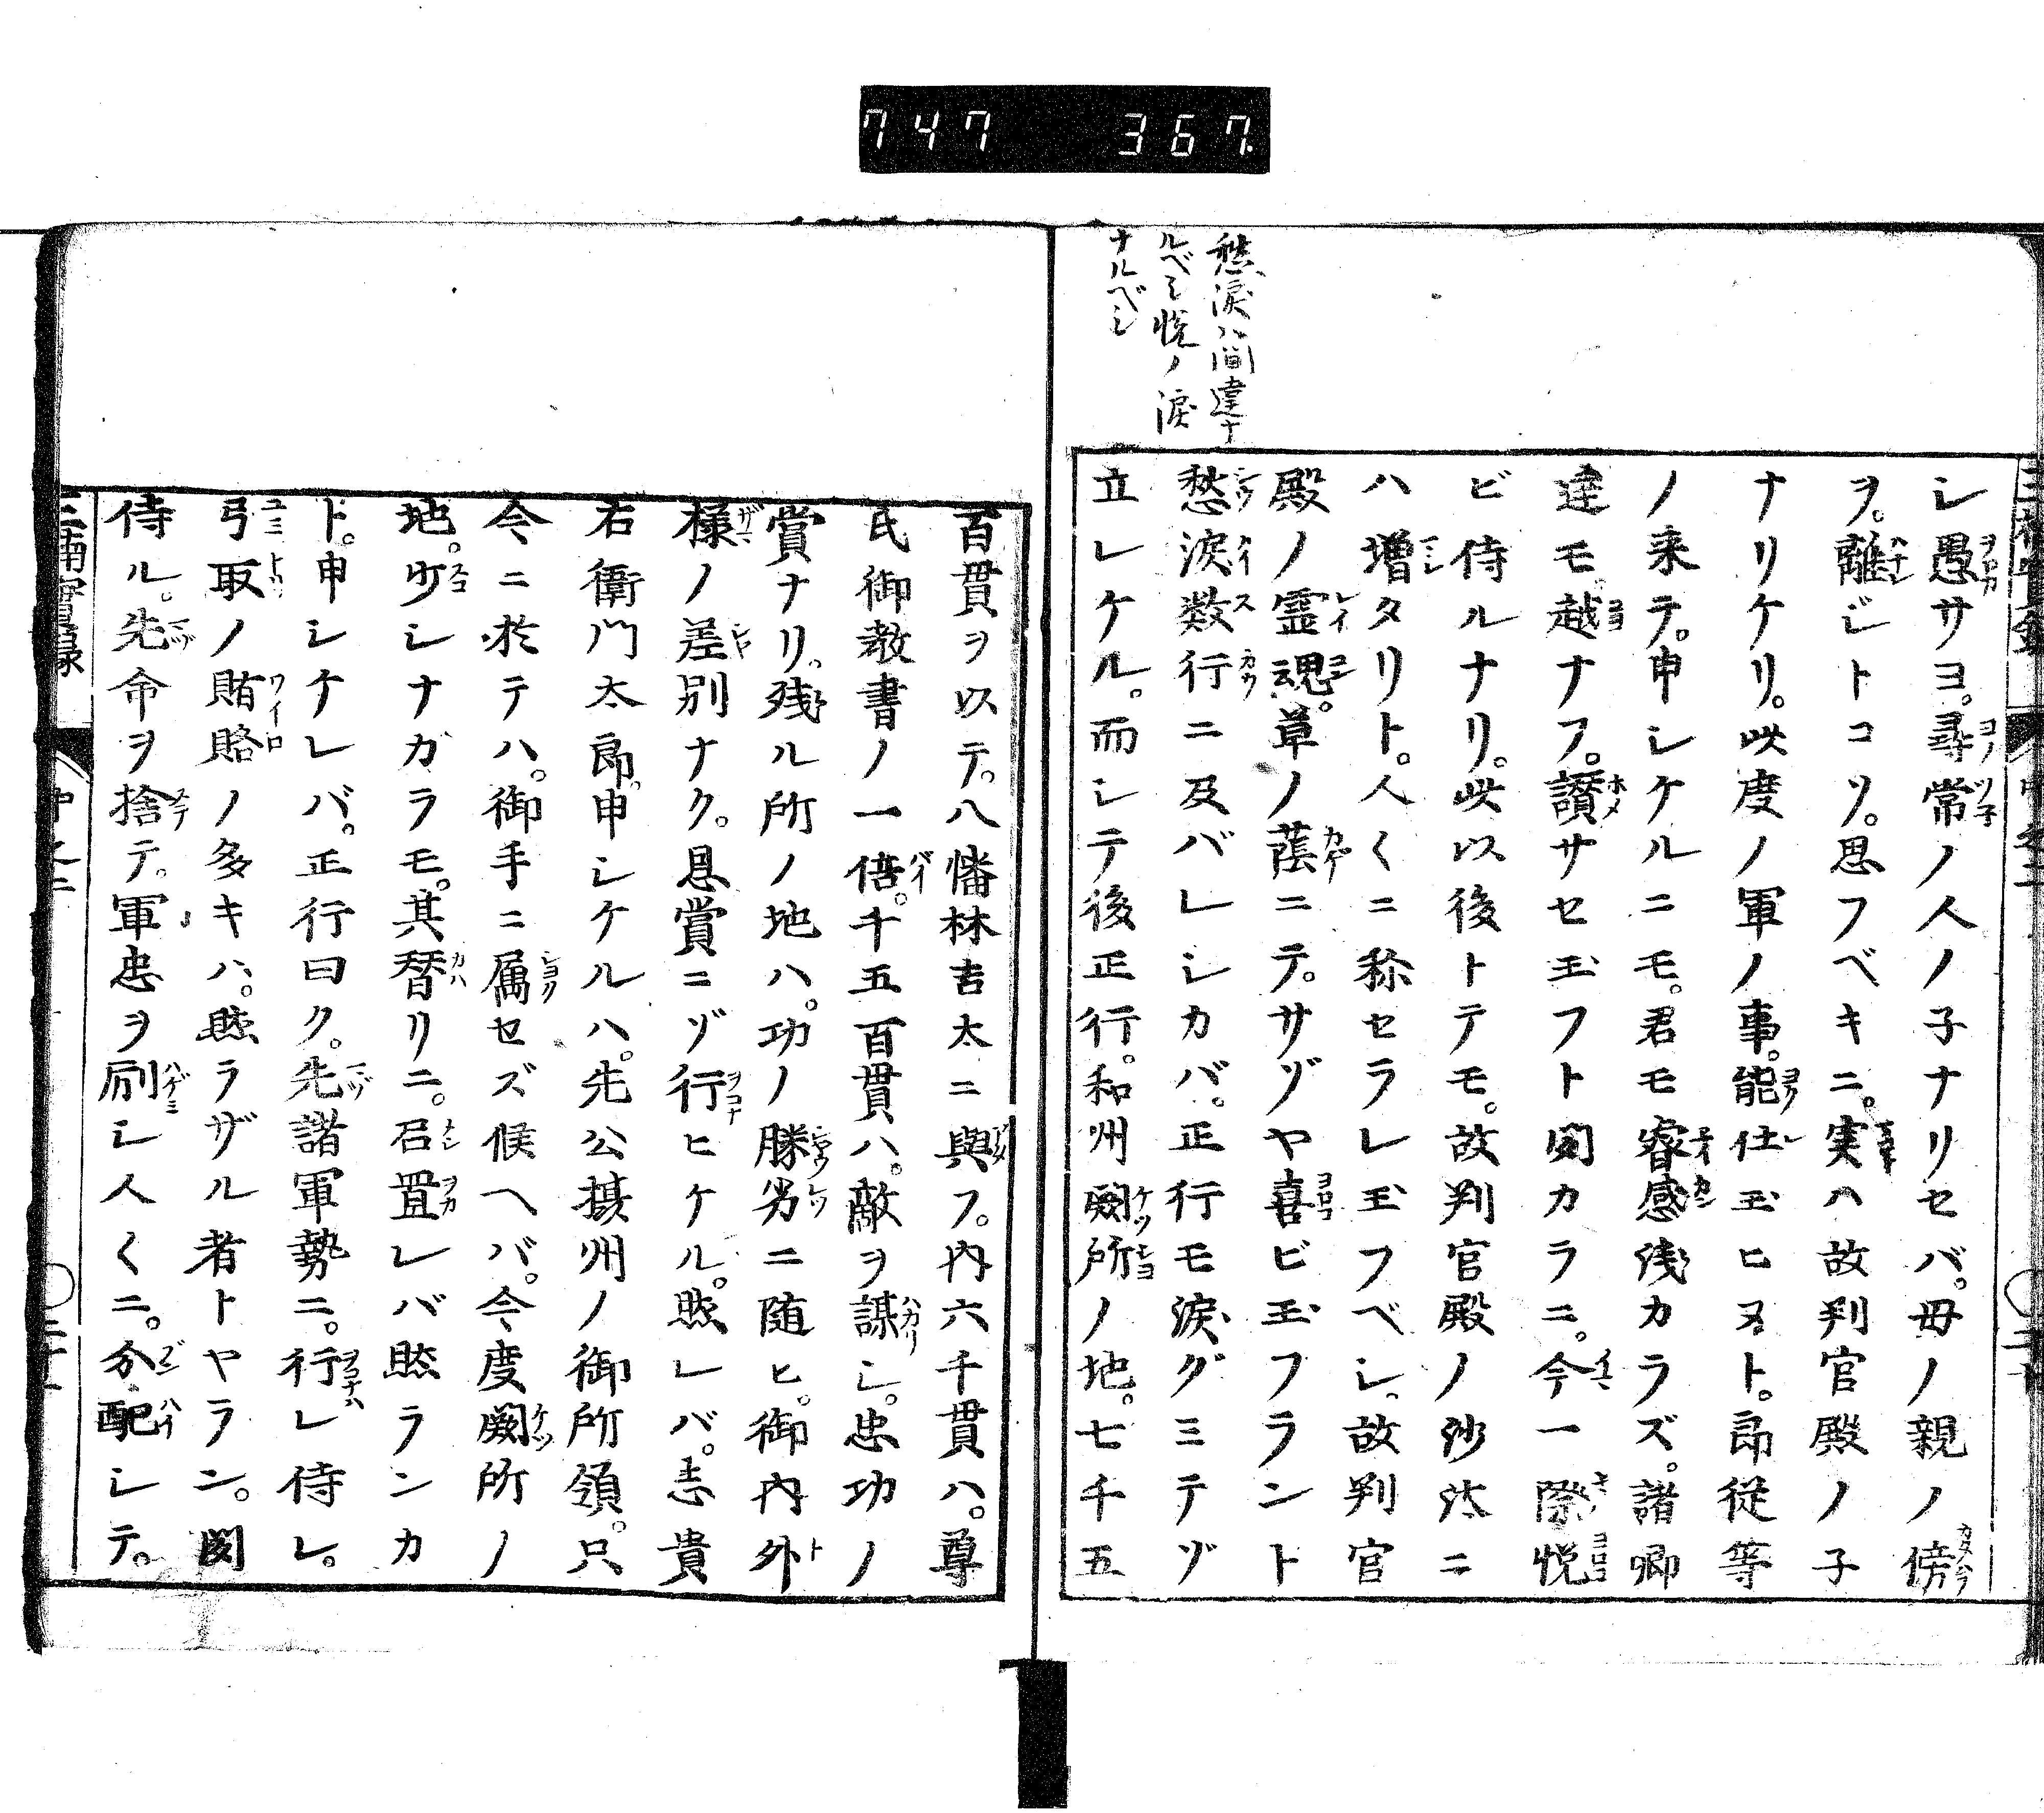 747 367
愁涙ハ間違ナ
ルベシ悦ノ涙
ナルベシ
シ愚サヨ。尋常ノ人ノ子ナリセバ。毋ノ親ノ傍
ヲ。離ジトコソ。思フベキニ。実ハ故判官殿ノ子
ナリケリ。此度ノ軍ノ事。能仕玉ヒヌト。郎従等
ノ来テ。申シケルニモ。君モ睿感浅カラズ。諸卿
達モ。越ナフ。讃サセ玉フト聞カラニ。今一際悦
ビ侍ルナリ。此以後トテモ。故判官殿ノ沙汰ニ
ハ増タリト。人〱ニ称セラレ玉フベシ。故判官
殿ノ霊魂。草ノ蔭ニテ。サゾヤ喜ビ玉フラント
愁涙数行ニ及バレシカバ。正行モ涙グミテゾ
立レケル。而シテ後正行。和州闕所ノ地。七千五
百貫ヲ以テ。八幡林吉太ニ與フ。内六千貫ハ。尊
氏御教書ノ一倍。千五百貫ハ。敵ヲ謀シ。忠功ノ
賞ナリ。残ル所ノ地ハ。功ノ勝劣ニ随ヒ。御内外
様ノ差別ナク。恩賞ニゾ行ヒケル。然レバ。志貴
右衛門太郎。申シケルハ。先公摂州ノ御所領。只
今ニ於テハ。御手ニ属セズ候ヘバ。今度闕所ノ
地。少シナガラモ。其替リニ。召置レバ然ランカ
ト。申シケレバ。正行曰ク。先諸軍勢ニ。行レ侍レ。
弓取ノ賄賂ノ多キハ。然ラザル者トヤラン。聞
侍ル。先命ヲ捨テ。軍忠ヲ励シ人〱ニ。分配シテ。